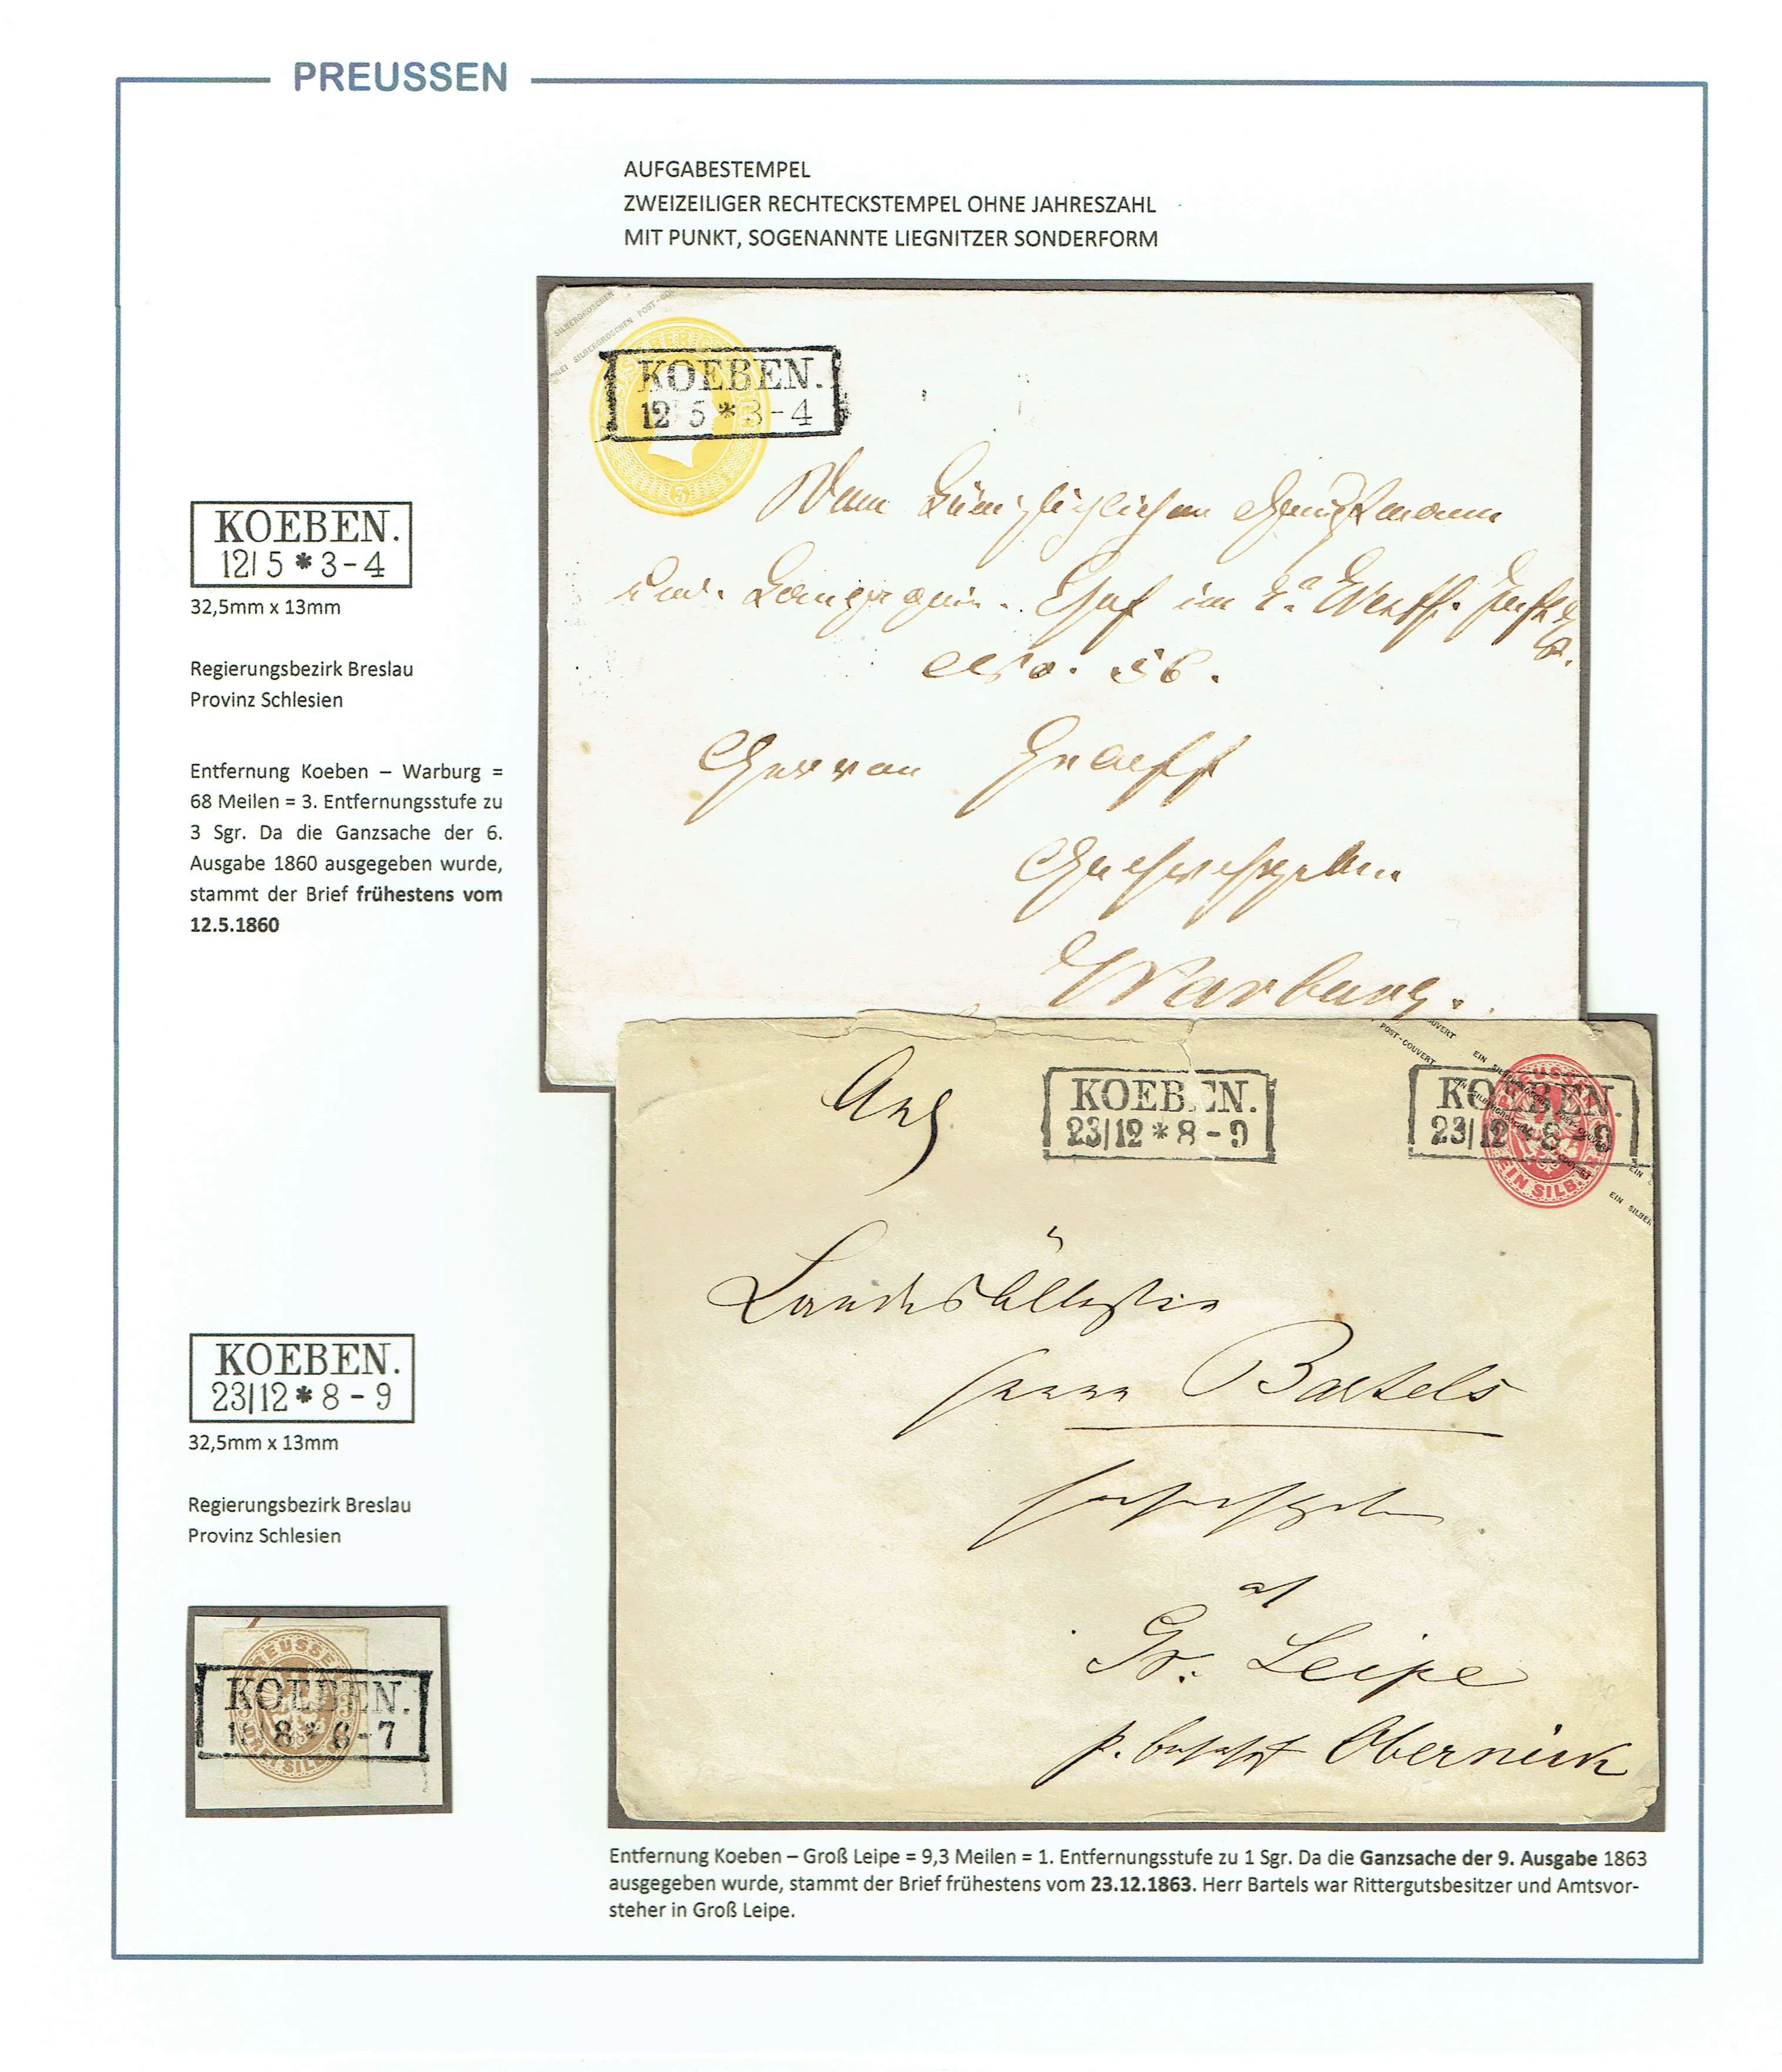 PREUSSEN
AUFGABESTEMPEL
ZWEIZEILIGER RECHTECKSTEMPEL OHNE JAHRESZAHL
MIT PUNKT, SOGENANNTE LIEGNITZER SONDERFORM
SILBERGROSCHEN
SILBERGROSCHEN POST-COU
KOEBEN.
12 5 * 3-4
3
Dem Königlichen Hauptmann
und Compagnie-Chef im
No. 56.
Herrn Graeff
Hochwohlgeboren
Warburg.
KOEBEN.
12| 5 * 3-4
32,5mm x 13mm
Regierungsbezirk Breslau
Provinz Schlesien
Entfernung Koeben – Warburg =
68 Meilen = 3. Entfernungsstufe zu
3 Sgr. Da die Ganzsache der 6.
Ausgabe 1860 ausgegeben wurde,
stammt der Brief frühestens vom
12.5.1860
POST-COUVERT EIN SILBERGROSCHEN
KOEBEN.
23|12 * 8 - 9
KOEBEN.
23|12 * 8 - 9
PREUSSEN
EIN SILB.
Landesältesten
Herrn Bartels
Gr. Leipe
p. Bahnhof Obernick
KOEBEN.
23|12 * 8 - 9
32,5mm x 13mm
Regierungsbezirk Breslau
Provinz Schlesien
PREUSSEN
KOEBEN.
8 * 6-7
Entfernung Koeben – Groß Leipe = 9,3 Meilen = 1. Entfernungsstufe zu 1 Sgr. Da die Ganzsache der 9. Ausgabe 1863
ausgegeben wurde, stammt der Brief frühestens vom 23.12.1863. Herr Bartels war Rittergutsbesitzer und Amtsvor-
steher in Groß Leipe.